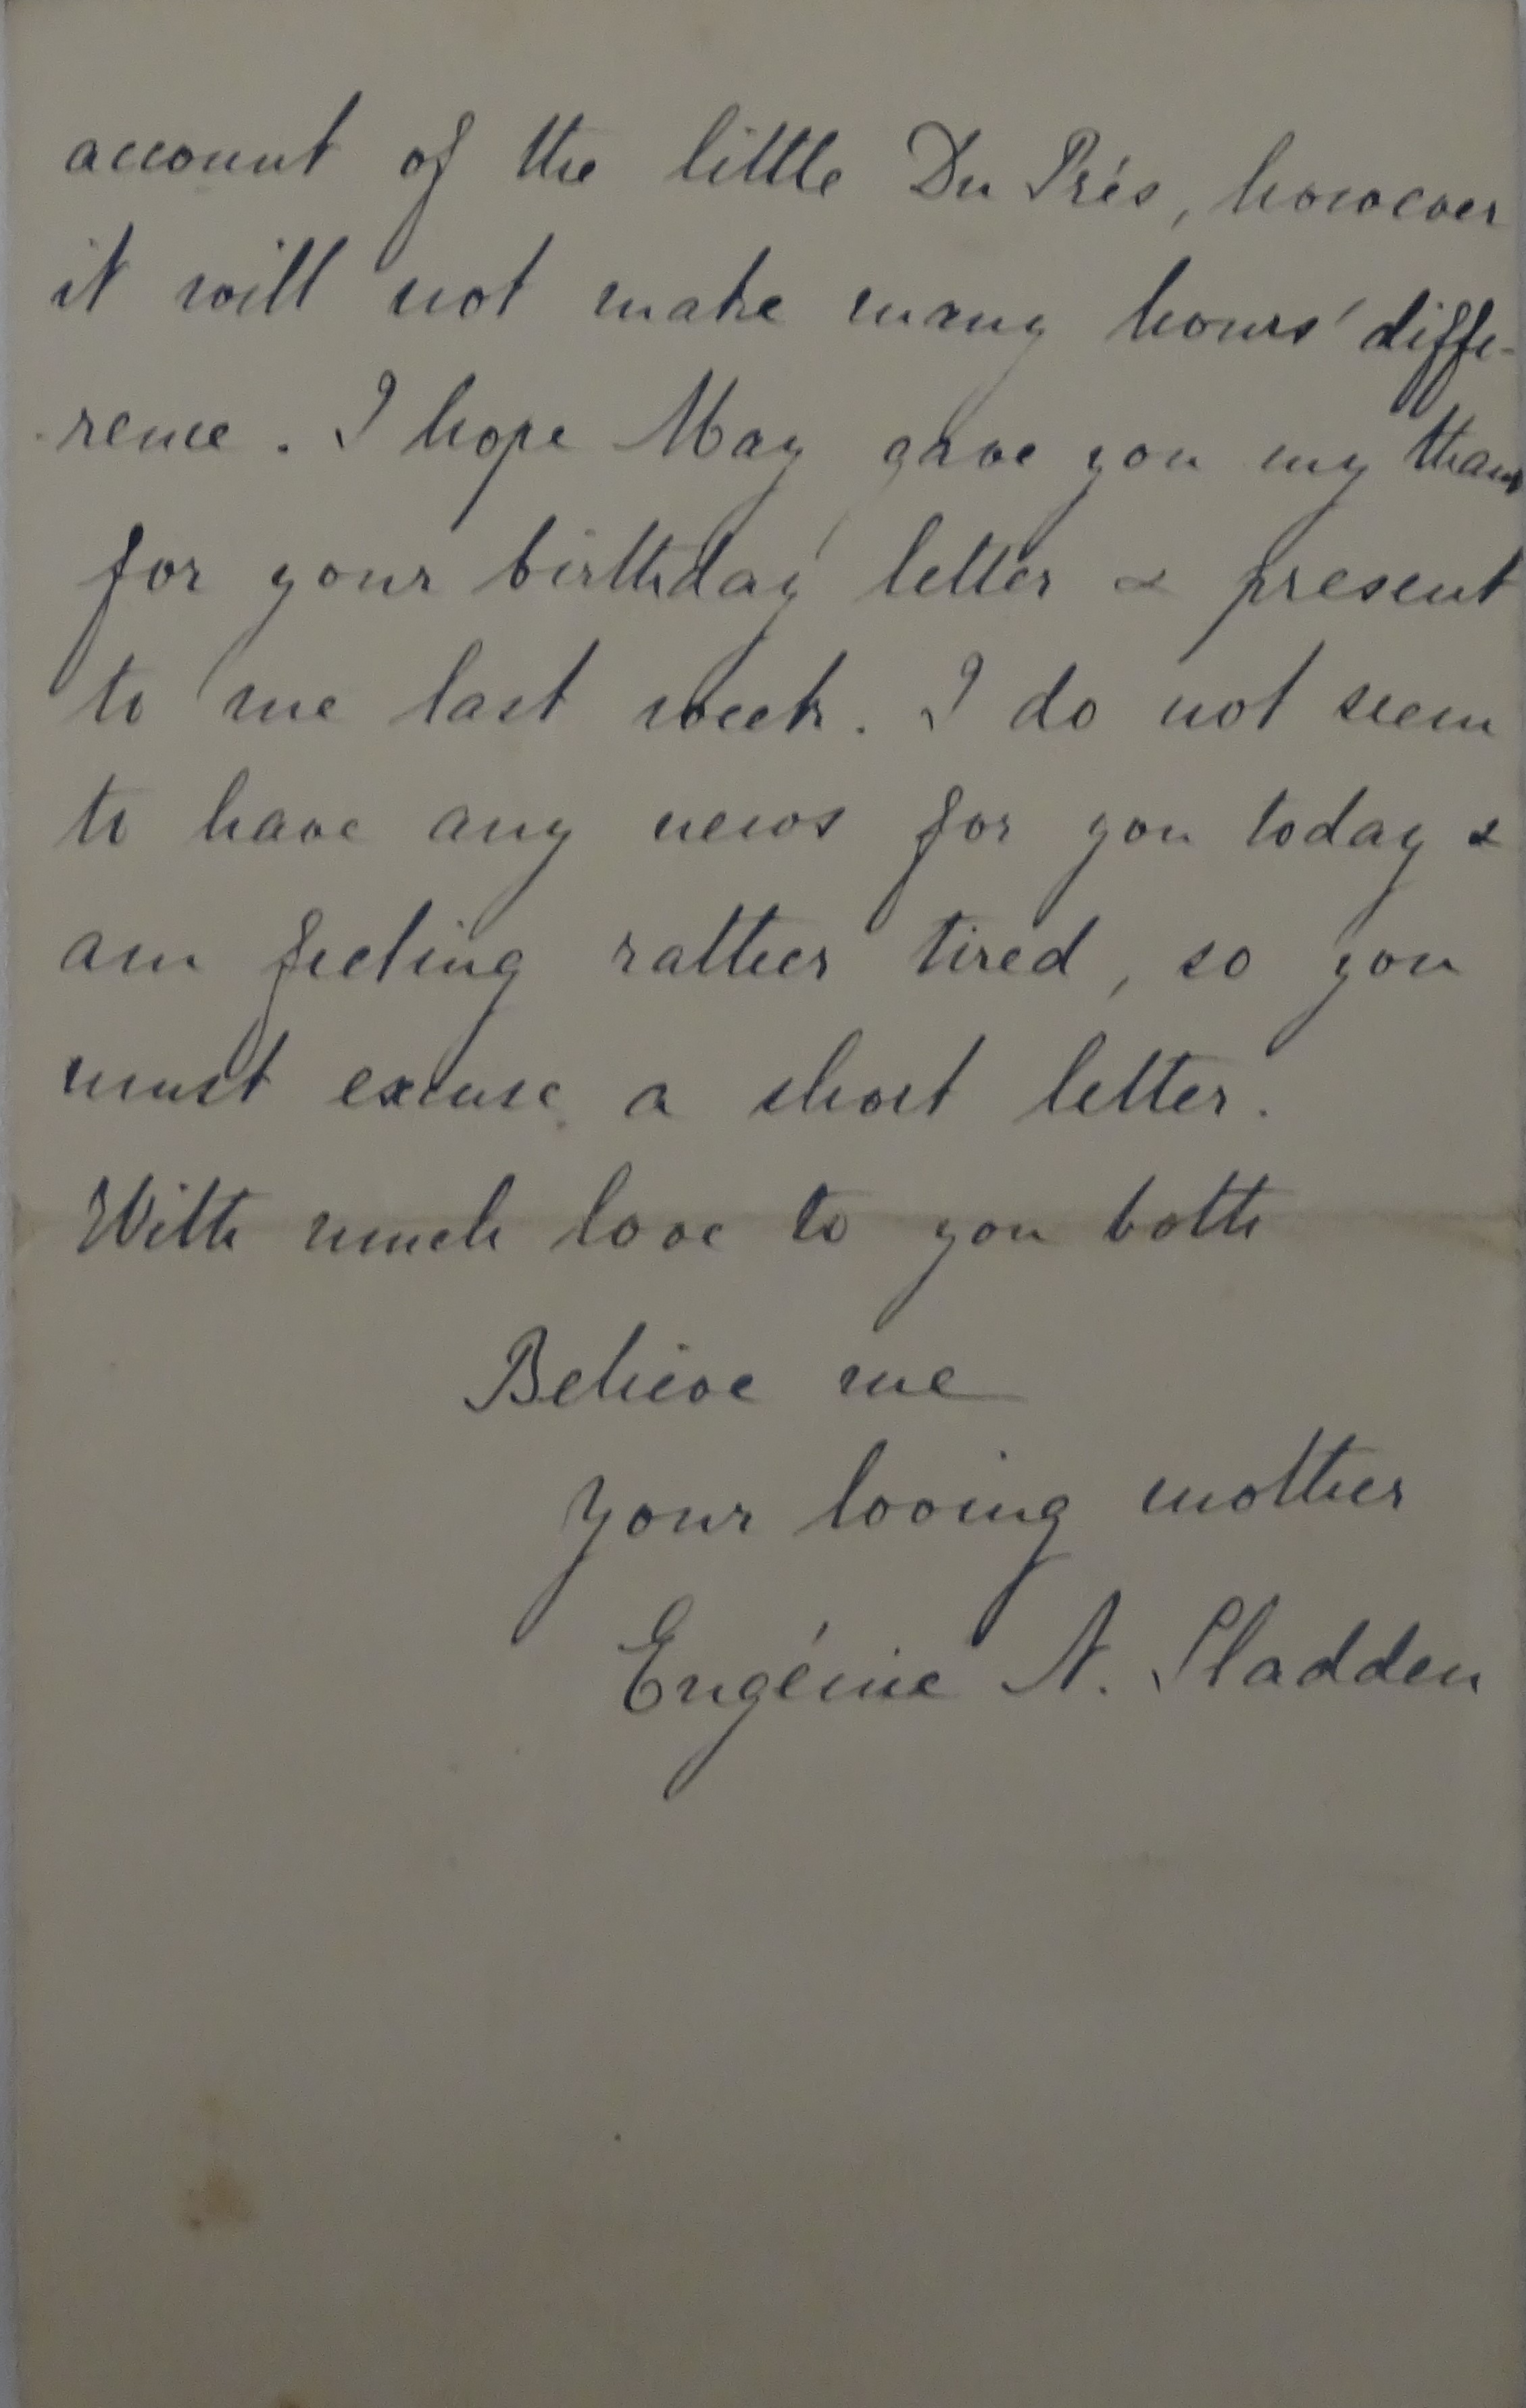 account of the little Du Prés, however
it will not make many hours' diffe-
rence. I hope May gave you my thanks
for your birthday letter & present
to me last week. I do not seem
to have any news for you today &
am feeling rather tired, so you
must excuse a short letter.
With much love to you both
Believe me
your loving mother
Eugénie N. Sladden